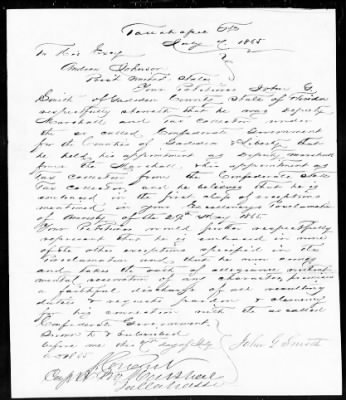 Tallahassee Fla
July 7 1865
To His Excy
Andrew Johnson
Prest United States
Your Petitioner John G
Smith of Gadsden County State of Florida
respectfully sheweth that he was deputy
Marshall and Tax Collector under
the so called Confederate Government
for the Counties of Gadsden & Liberty that
he held his appointment as deputy marshall
from the Marshall, his appointment as
tax collector from the Confederate States
Tax Collector, and he believes that he is
embraced in the first class of exceptions
mentioned in your Excellencys Proclamation
of Amnesty of the 29th May 1865.
Your Petitioner would further respectfully
represent that he is embraced in none
of the other exceptions specified in the
Proclamation and that he now comes
and takes the oath of allegiance without
mental reservation of any character, promises
a faithful discharge of all resulting
duties & requests pardon & clemency
for his connection with the so called
Confederate Government.
Sworn to & Subscribed
before me this 7th day of July
1865
John G Smith
Capt &
Pro Marshal
Tallahassee